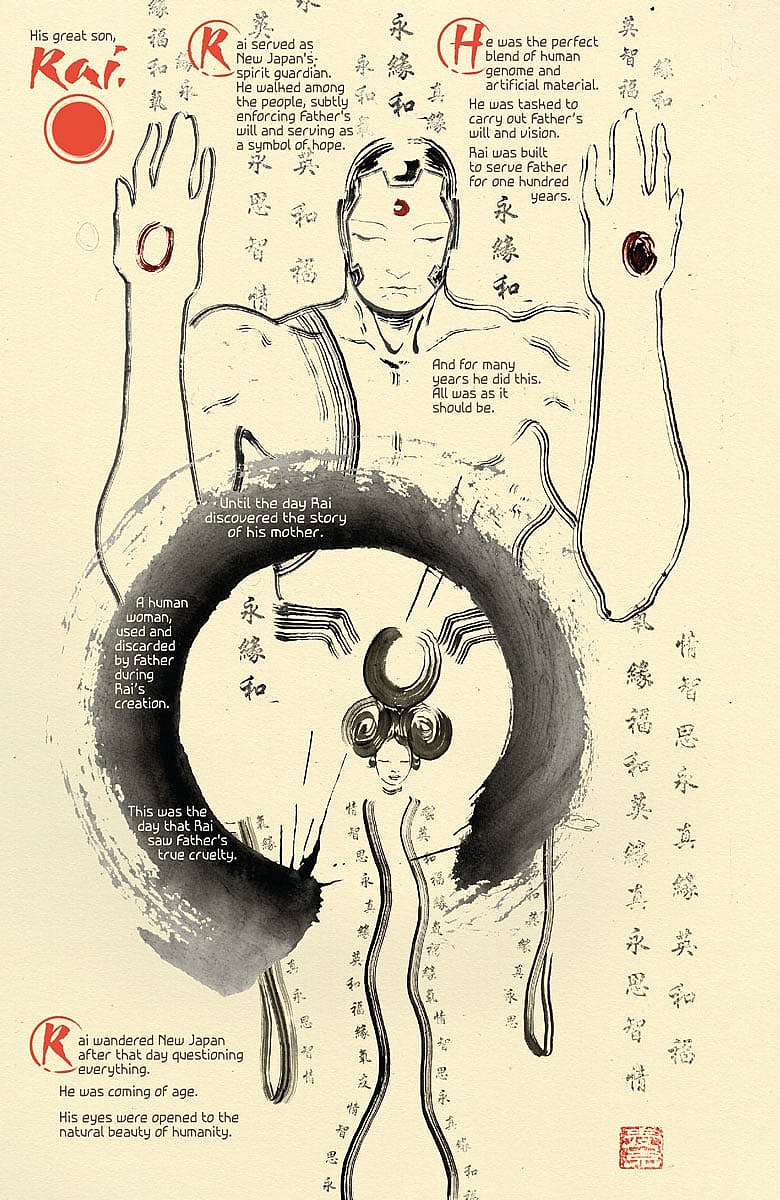 His great son,
Rai.
Rai served as
New Japan's
spirit guardian.
He walked among
the people, subtly
enforcing Father's
will and serving as
a symbol of hope.
He was the perfect
blend of human
genome and
artificial material.
He was tasked to
carry out Father's
will and vision.
Rai was built
to serve Father
for one hundred
years.
緣福和氣
緣永
英
永和氣
永緣和
真緣
英智福
緣和
永思智情
英和福
永緣和
And for many
years he did this.
All was as it
should be.
Until the day Rai
discovered the story
of his mother.
A human
woman,
used and
discarded
by Father
during
Rai's
creation.
永緣和
This was the
day that Rai
saw Father's
true cruelty.
氣緣
真永思智情
情智思永真緣英和福緣氣
智思永
氣緣福和英緣真永思智情
情智思永真緣英和福
Rai wandered New Japan
after that day questioning
everything.
He was coming of age.
His eyes were opened to the
natural beauty of humanity.